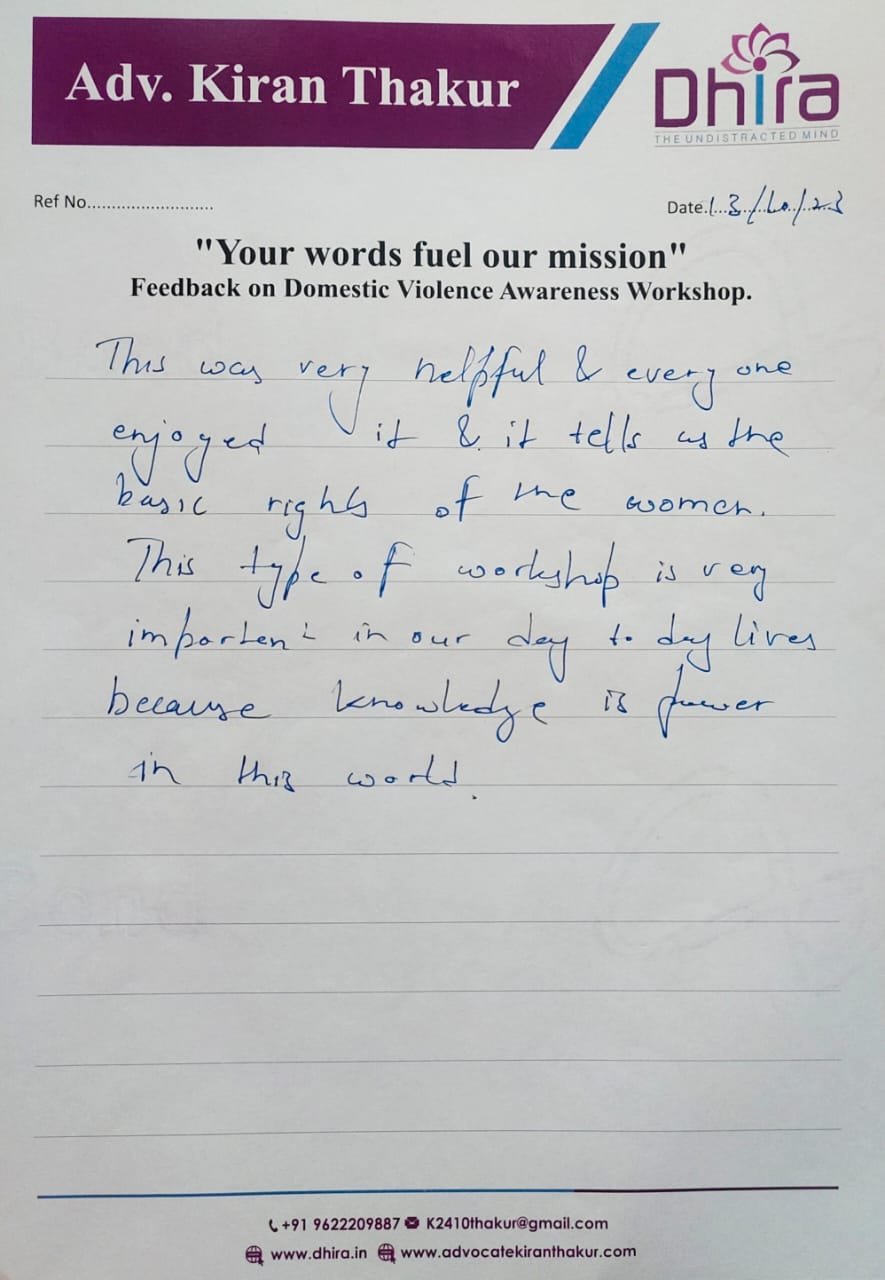 Adv. Kiran Thakur
Dhira
THE UNDISTRACTED MIND
Ref No..........................
Date.13/10/23
"Your words fuel our mission"
Feedback on Domestic Violence Awareness Workshop.
This was very helpful & every one
enjoyed it & it tells us the
basic rights of the women.
This type of workshop is very
important in our day to day lives
because knowledge is power
in this world.
+91 9622209887 K2410thakur@gmail.com
www.dhira.in www.advocatekiranthakur.com